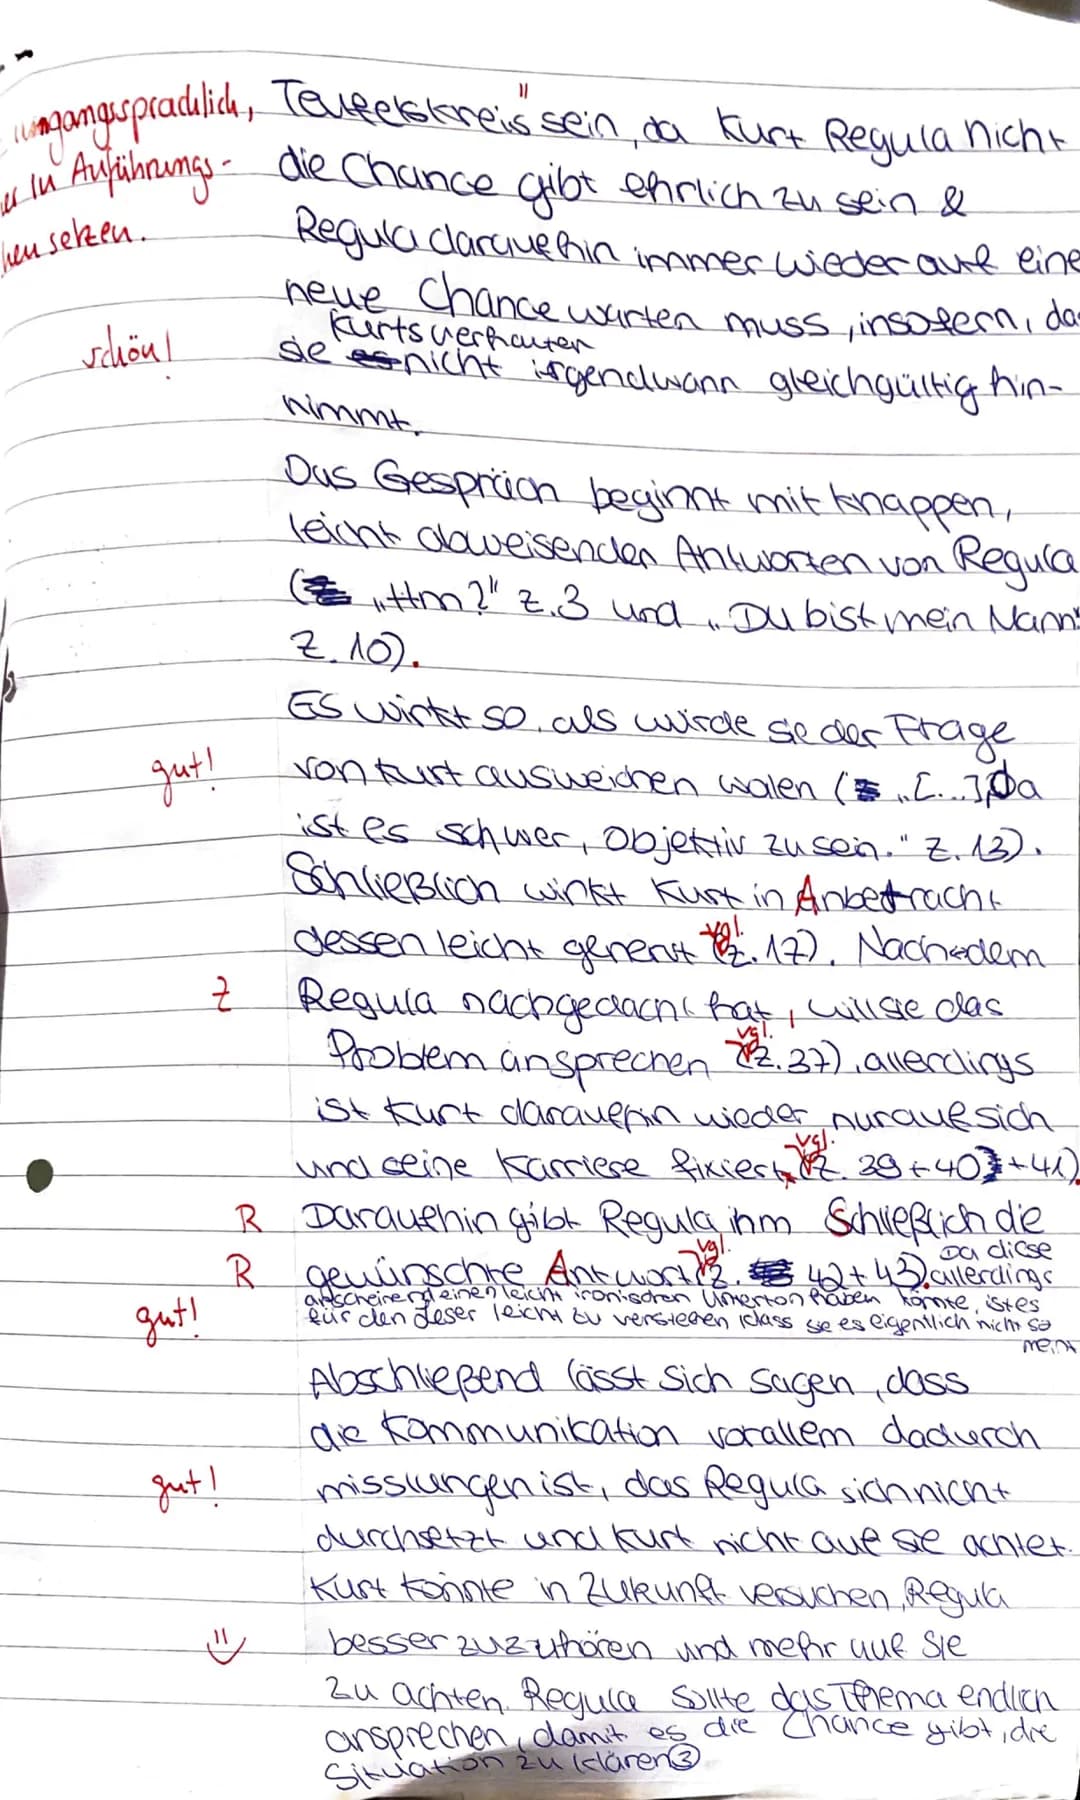 umgangssprachlich, Teufelskreis" sein, da Kurt Regula nicht
in Anführungs- die Chance gibt ehrlich zu sein &
setzen. Regula daraufhin immer wieder auf eine
neue Chance warten muss, insofern, das
Kurts verhalten
schön! sie es nicht irgendwann gleichgültig hin-
nimmt.
Das Gespräch beginnt mit knappen,
leicht abweisenden Antworten von Regula
("Hm?" Z.3 und „Du bist mein Mann"
Z. 10).
Es wirkt so, als würde sie der Frage
gut! von Kurt ausweichen wollen („[...] Da
ist es schwer, Objektiv zu sein." Z. 13).
Schließlich wirkt Kurt in Anbetracht
dessen leicht genervt (vgl. Z. 17). Nachdem
Z Regula nachgedacht hat, will sie das
Problem ansprechen (vgl. Z. 37), allerdings
ist Kurt daraufhin wieder nur auf sich
und seine Karriere fixiert (vgl. Z. 39+40+41).
R Daraufhin gibt Regula ihm Schließlich die
R gewünschte Antwort (vgl. Z. 42+43). Da diese allerdings
anscheinend einen leicht ironischen Unterton haben könnte, ist es
gut! für den Leser leicht zu verstehen, dass sie es eigentlich nicht so
meint
Abschließend lässt sich sagen, dass
die Kommunikation vorallem dadurch
gut! misslungen ist, das Regula sich nicht
durchsetzt und Kurt nicht auf sie achtet.
Kurt könnte in Zukunft versuchen, Regula
besser zuzuhören und mehr auf Sie
zu achten. Regula sollte das Thema endlich
ansprechen, damit es die Chance gibt, die
Situation zu klären ③